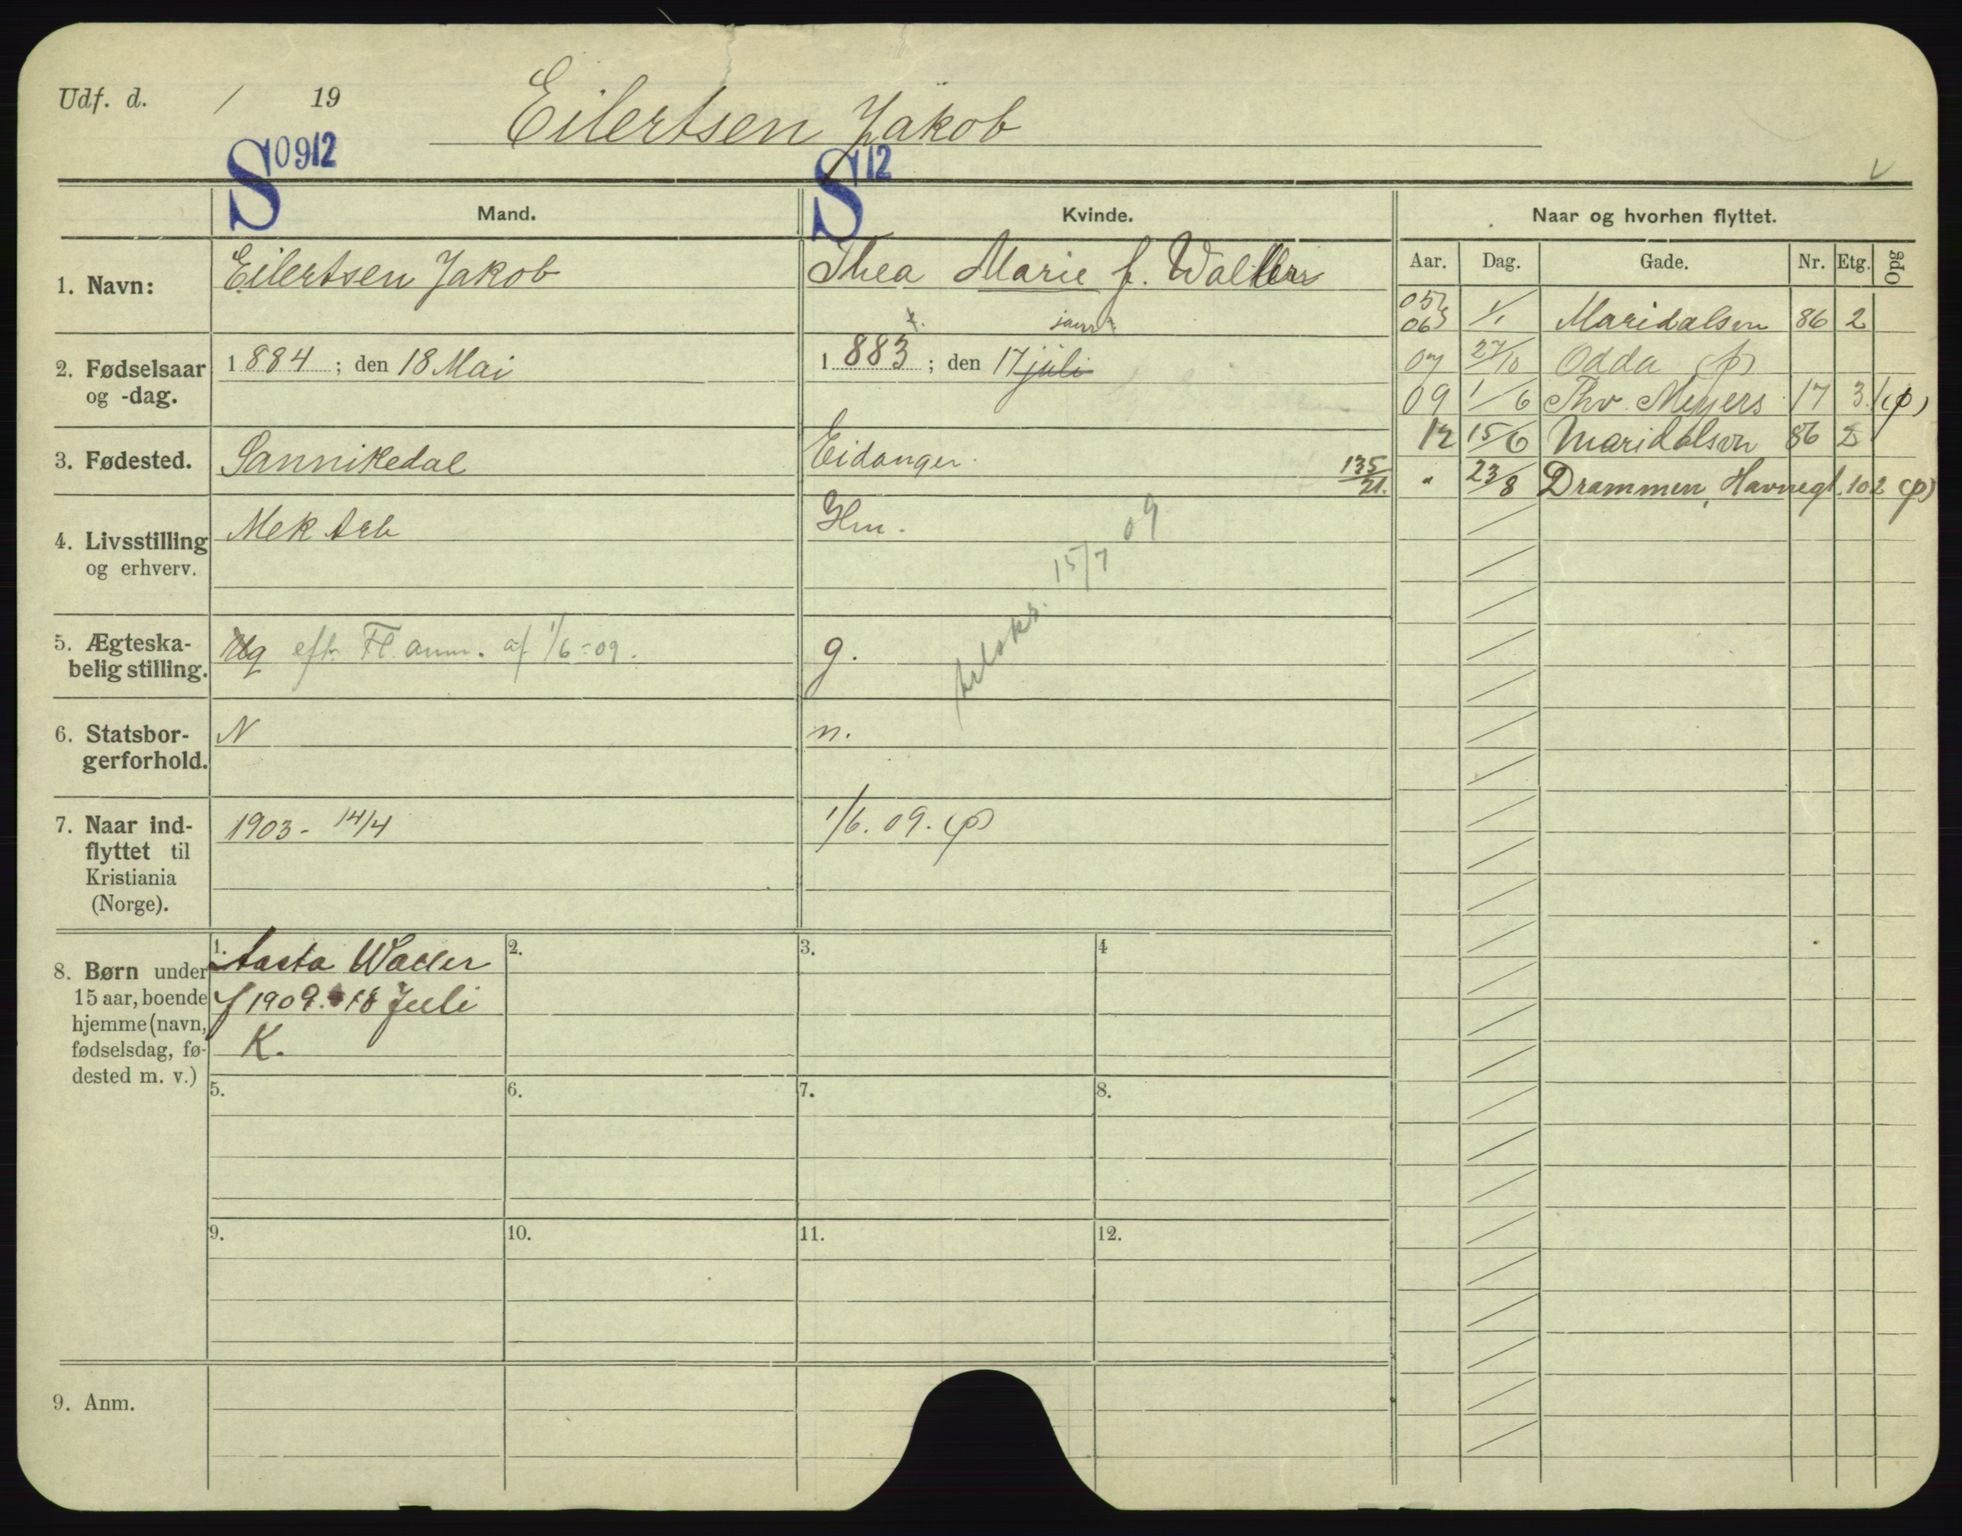 Udf. d. / 19
Eilertsen Jakob
S 0912
S 12
Mand.
Kvinde.
Naar og hvorhen flyttet.
Aar. Dag. Gade. Nr. Etg. Opg
1. Navn:
Eilertsen Jakob
Thea Marie f. Waller
2. Fødselsaar
og -dag.
1884 ; den 18 Mai
janr
1883 ; den 17 juli
3. Fødested.
Sannikedal
Eidanger.
135/21.
4. Livsstilling
og erhverv.
Mek Arb
Hm.
15/7 09
5. Ægteska-
belig stilling.
Ug eft. Fl. anm. af 1/6-09.
g.
6. Statsbor-
gerforhold.
N
n.
7. Naar ind-
flyttet til
Kristiania
(Norge).
1903- 14/4
1/6. 09. (p)
8. Børn under
15 aar, boende
hjemme (navn,
fødselsdag, fø-
dested m. v.)
1. Aasta Waller
f 1909. 18 Juli
K.
2.
3.
4
5.
6.
7.
8.
9.
10.
11.
12.
9. Anm.
05
06 1/1 Maridalsvn 86 2
07 27/10 Odda (p)
09 1/6 Thv. Meyers 17 3 (p)
12 15/6 Maridalsvn 86 2
" 23/8 Drammen, Havnegt. 102 (p)